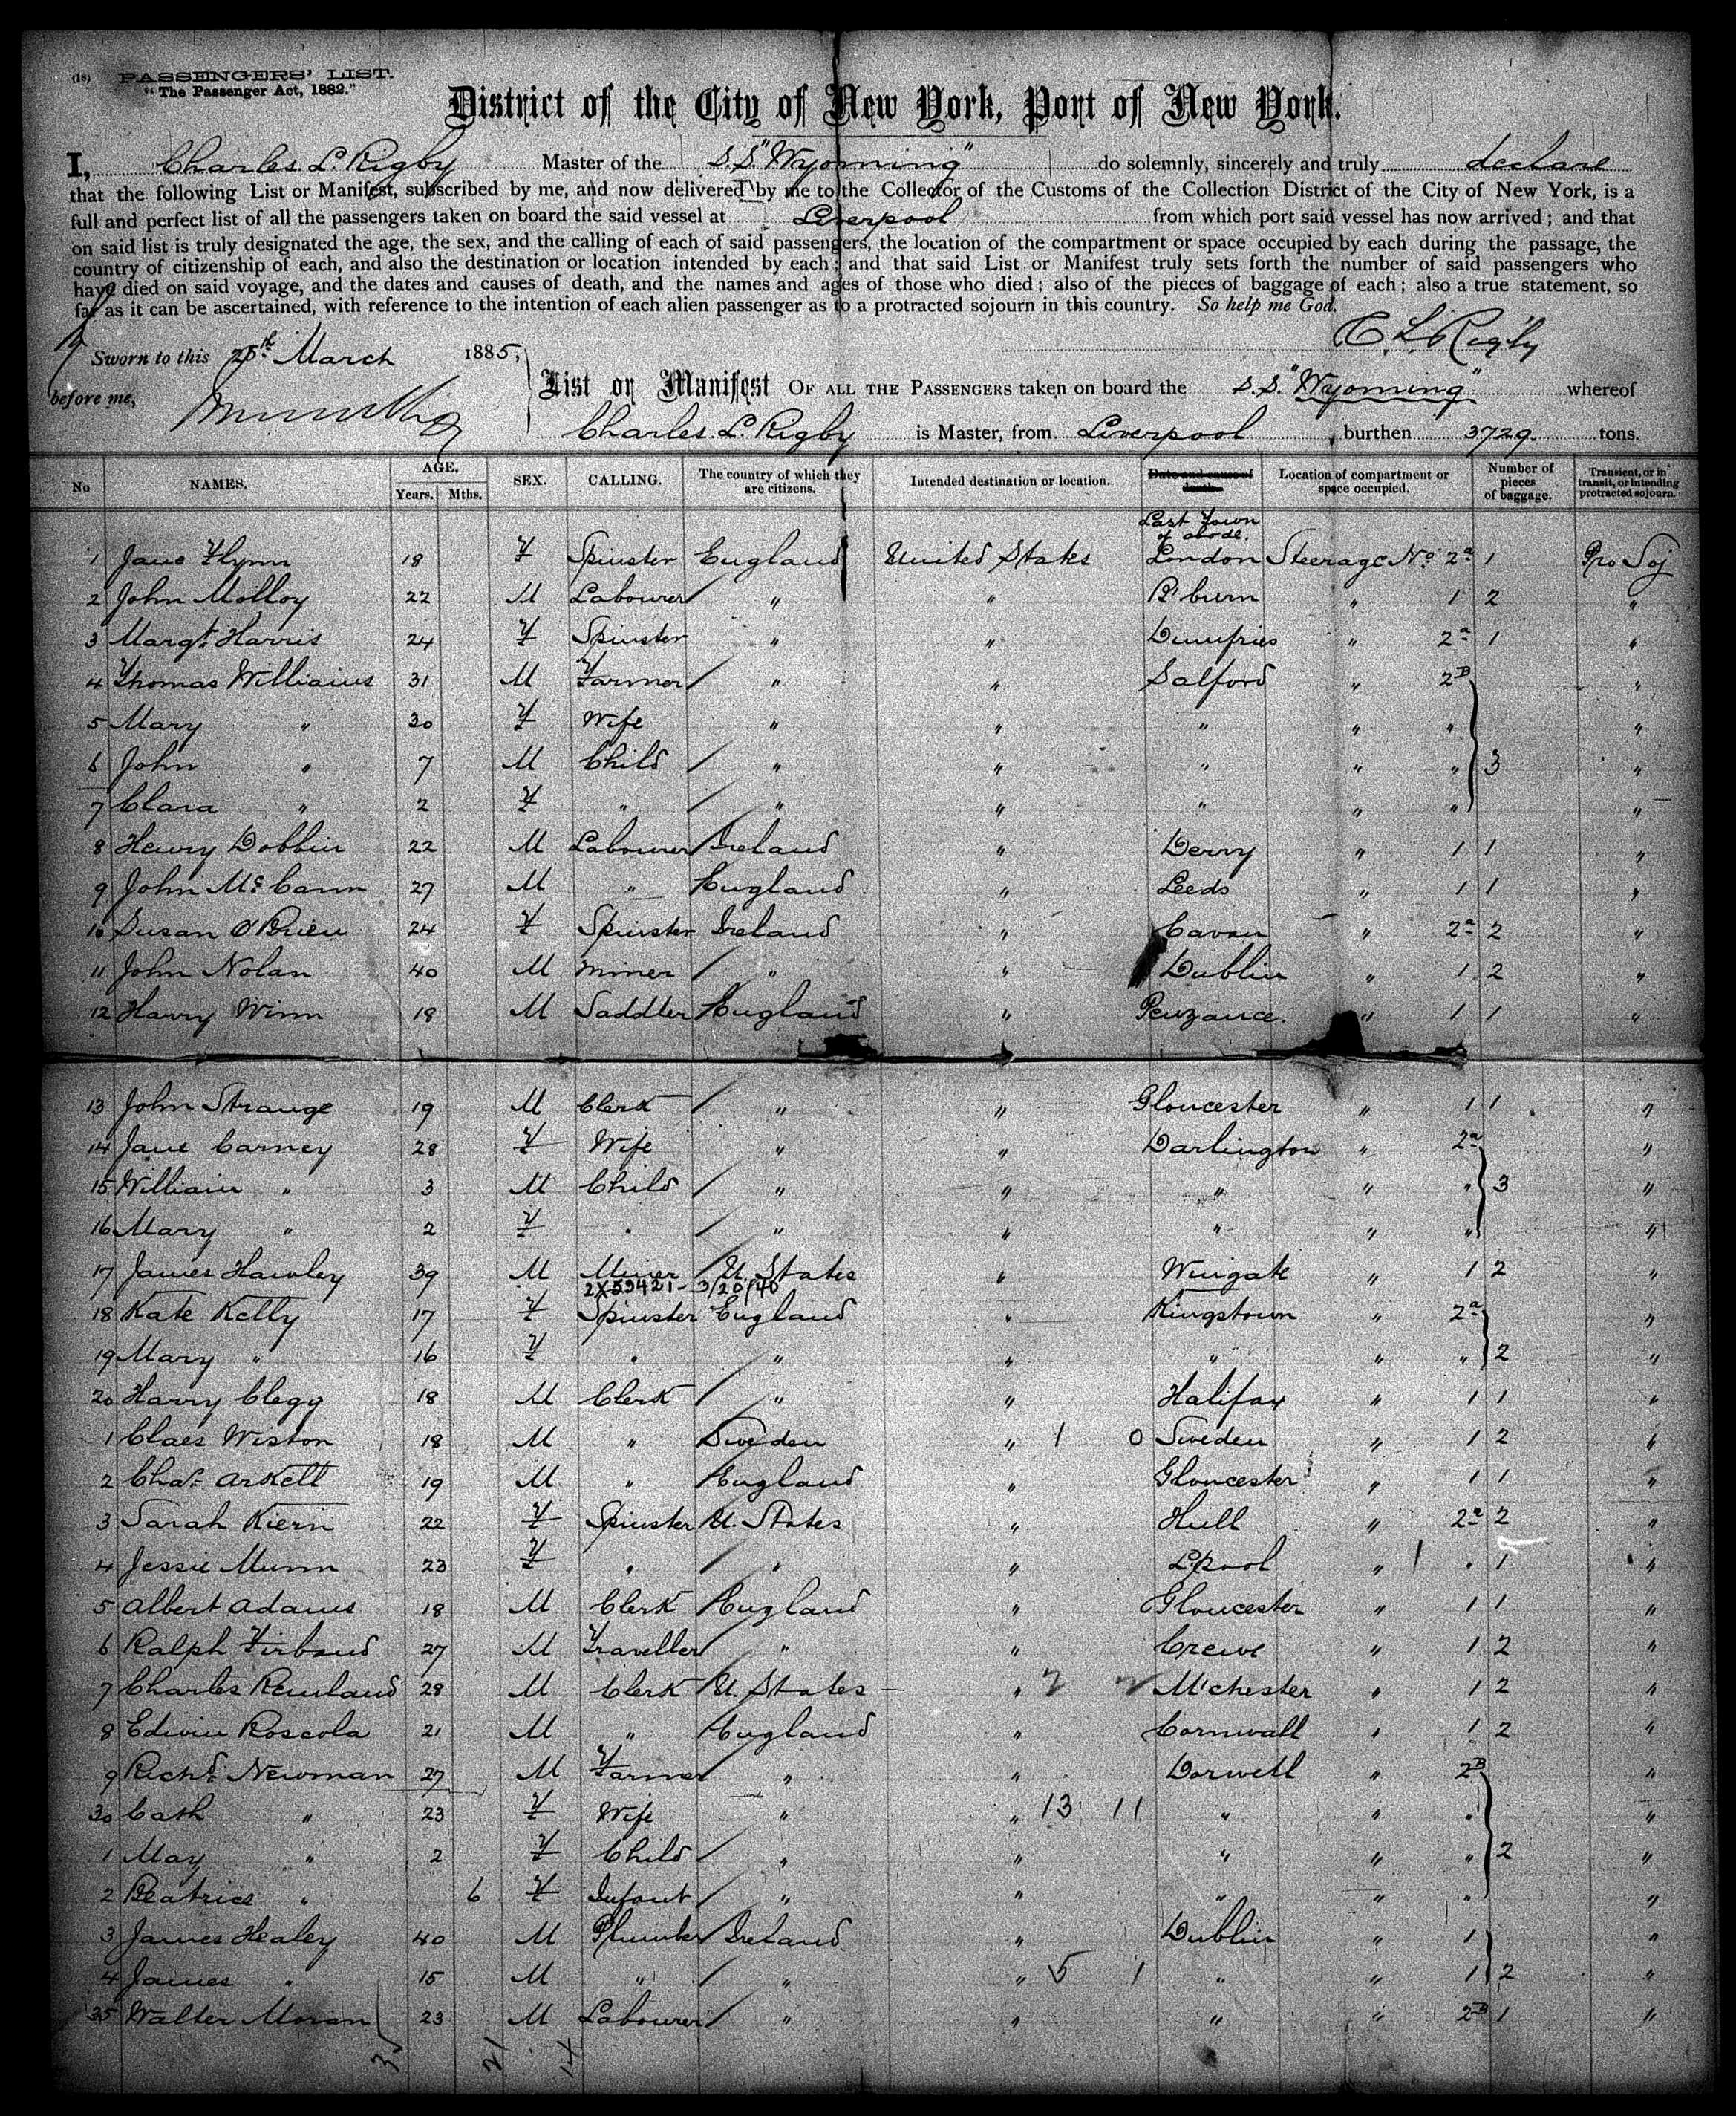 (18) PASSENGERS' LIST.
"The Passenger Act, 1882."
District of the City of New York, Port of New York.
I, Charles L. Rigby Master of the S.S. "Wyoming" do solemnly, sincerely and truly declare
that the following List or Manifest, subscribed by me, and now delivered by me to the Collector of the Customs of the Collection District of the City of New York, is a
full and perfect list of all the passengers taken on board the said vessel at Liverpool from which port said vessel has now arrived; and that
on said list is truly designated the age, the sex, and the calling of each of said passengers, the location of the compartment or space occupied by each during the passage, the
country of citizenship of each, and also the destination or location intended by each; and that said List or Manifest truly sets forth the number of said passengers who
have died on said voyage, and the dates and causes of death, and the names and ages of those who died; also of the pieces of baggage of each; also a true statement, so
far as it can be ascertained, with reference to the intention of each alien passenger as to a protracted sojourn in this country. So help me God.
C. L. Rigby
Sworn to this March 1885,
before me,
List or Manifest OF ALL THE PASSENGERS taken on board the S.S. "Wyoming" whereof
Charles. L. Rigby is Master, from Liverpool burthen 3729. tons.
No NAMES. AGE. Years. Mths. SEX. CALLING. The country of which they are citizens. Intended destination or location. Date and cause of death. Location of compartment or space occupied. Number of pieces of baggage. Transient, or in transit, or intending protracted sojourn.
Last Town
of abode.
1 Jane Flynn 18 F Spinster England United States London Steerage No. 2a 1 Pro Soj
2 John Molloy 22 M Labourer " " B'burn " 1 2 "
3 Margt. Harris 24 F Spinster " " Dumfries " 2a 1 "
4 Thomas Williams 31 M Farmer " " Salford " 2B "
5 Mary " 30 F Wife " " " " " "
6 John " 7 M Child " " " " " 3 "
7 Clara " 2 F " " " " " " "
8 Henry Dobbin 22 M Labourer Ireland " Derry " 1 1 "
9 John McCann 27 M " England " Leeds " 1 1 "
10 Susan O'Brien 24 F Spinster Ireland " Cavan " 2a 2 "
11 John Nolan 40 M Miner " " Dublin " 1 2 "
12 Harry Winn 18 M Saddler England " Penzance. " 1 1 "
13 John Strange 19 M Clerk " " Gloucester " 1 1 "
14 Jane Carney 28 F Wife " " Darlington " 2a "
15 William " 3 M Child " " " " " 3 "
16 Mary " 2 F " " " " " " "
17 James Hawley 39 M Miner U. States " Wingate " 1 2 "
2X59421- 3/20/40
18 Kate Kelly 17 F Spinster England " Kingstown " 2a "
19 Mary " 16 F " " " " " " 2 "
20 Harry Clegg 18 M Clerk " " Halifax " 1 1 "
1 Claes Weston 18 M " Sweden " 1 0 Sweden " 1 2 "
2 Chas. Arkell 19 M " England " Gloucester " 1 1 "
3 Sarah Kiern 22 F Spinster U. States " Hull " 2a 2 "
4 Jessie Munn 23 F " " " L'pool " 1 " 1 "
5 Albert Adams 18 M Clerk England " Gloucester " 1 1 "
6 Ralph Firband 27 M Traveller " " Crewe " 1 2 "
7 Charles Rewland 28 M Clerk U. States " 2 2 M'chester " 1 2 "
8 Edwin Roscola 21 M " England " Cornwall " 1 2 "
9 Richd. Newman 27 M Farmer " " Dorwell " 2B "
30 Cath " 23 F Wife " " 13 11 " " " "
1 May " 2 F Child " " " " " 2 "
2 Beatrice " 6 F Infant " " " " " "
3 James Healey 40 M Plumber Ireland " Dublin " 1 "
4 James " 15 M " " " 5 1 " " 1 2 "
35 Walter Moran 23 M Labourer " " " " 2B 1 "
21 14